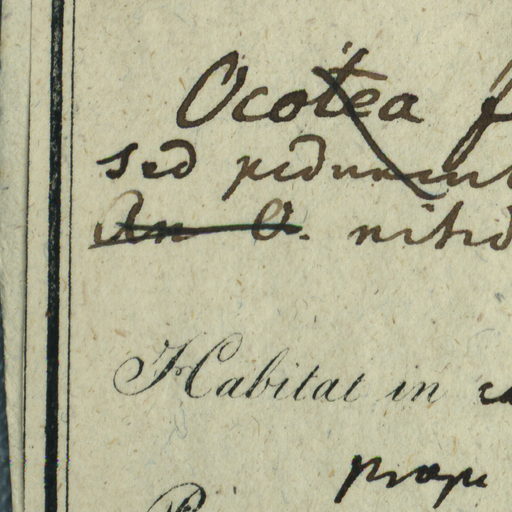 Ocotea f
sed pedun
An O. nitid
Habitat in ca
prope